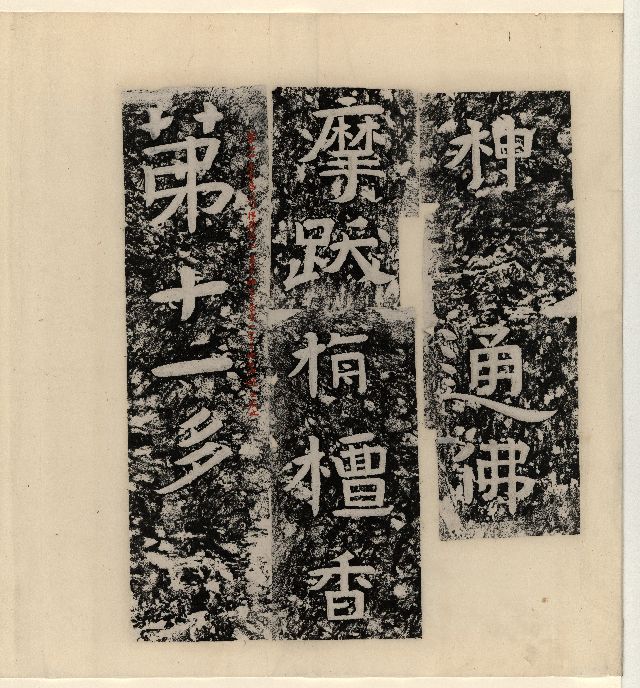 神通佛
摩跋栴檀香
苐十一多